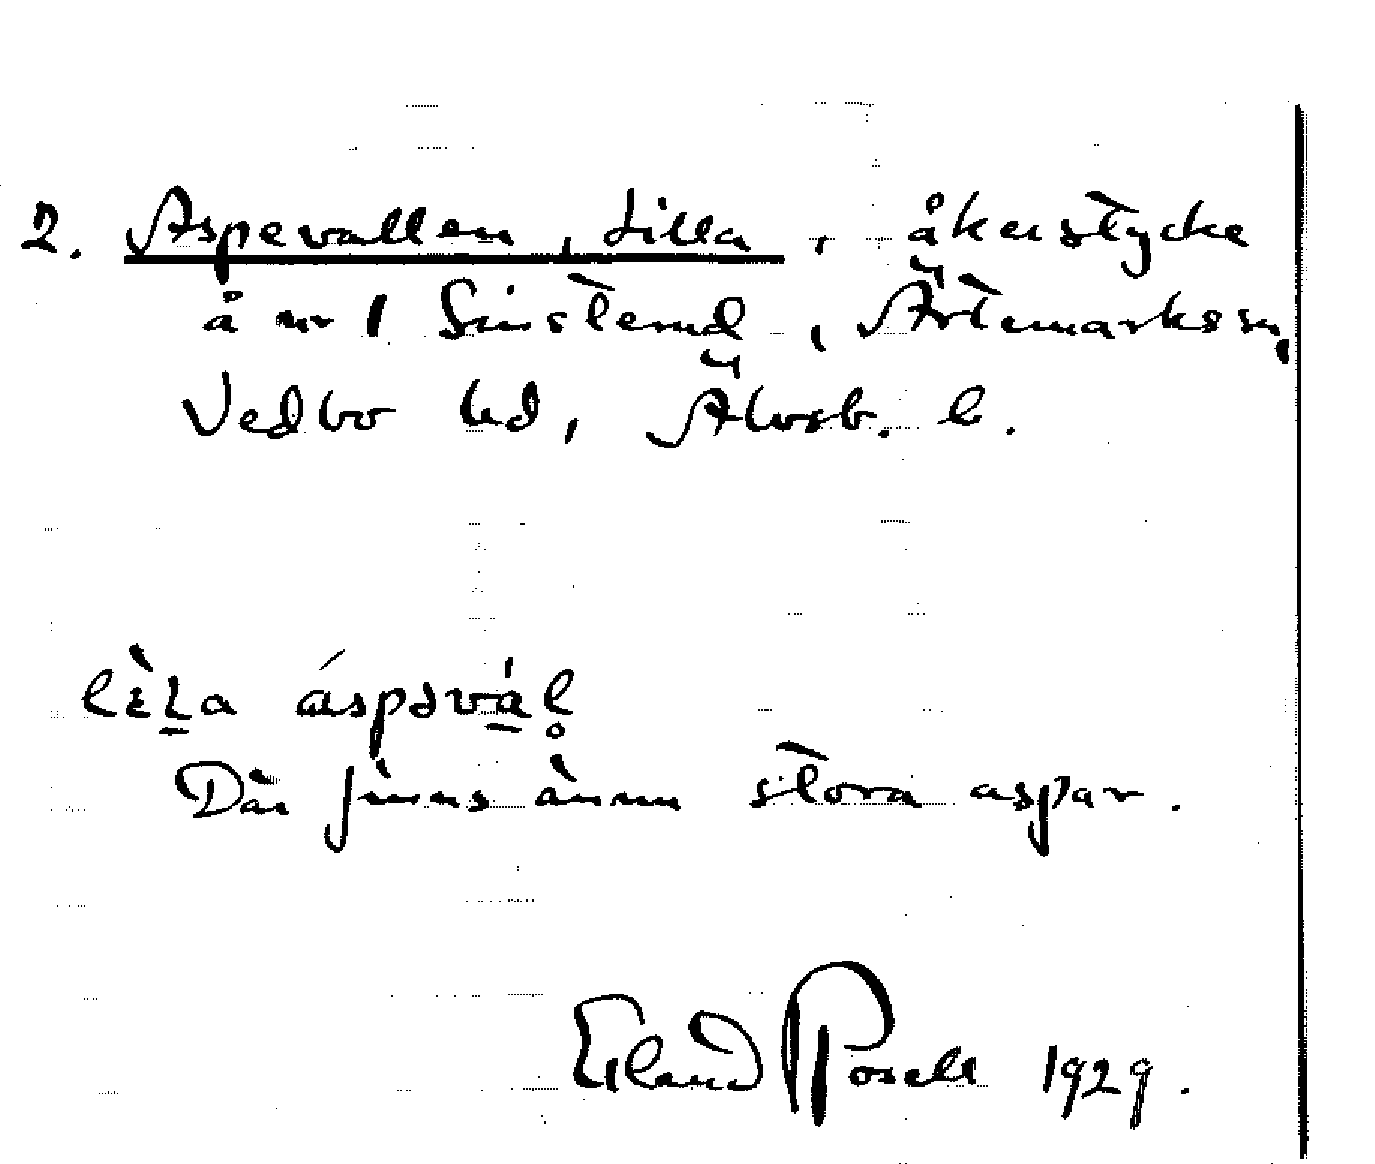 2. Aspevallen, Lilla, åkerstycke
å nr 1 Sisterud, Ärtemarks sn,
Vedbo hd, Älvsb. l.
áspəvàl̥
Där finns ännu stora aspar.
Erland Rosell 1929.